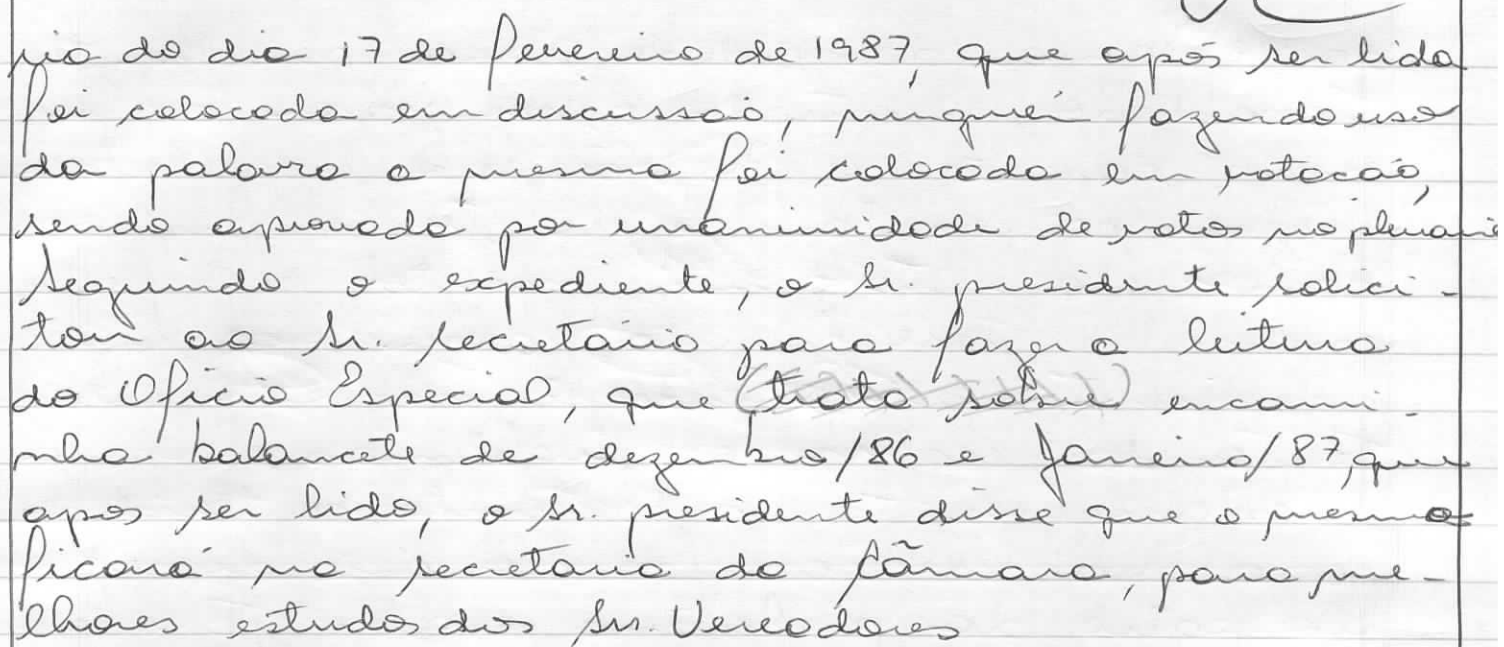 ria do dia 17 de fevereiro de 1987, que após ser lida
foi colocada em discussão, ninguém fazendo uso
da palavra a mesma foi colocada em votação,
sendo aprovada por unanimidade de votos no plenario
Seguindo o expediente, o Sr. presidente solici-
tou ao Sr. secretário para fazer a leitura
do Oficio Especial, que (trata sobre) encami-
nha balancete de dezembro/86 e Janeiro/87, que
apos ser lido, o Sr. presidente disse que o mesmo
ficará na secretaria da Câmara, para me-
lhores estudos dos Srs. Vereadores